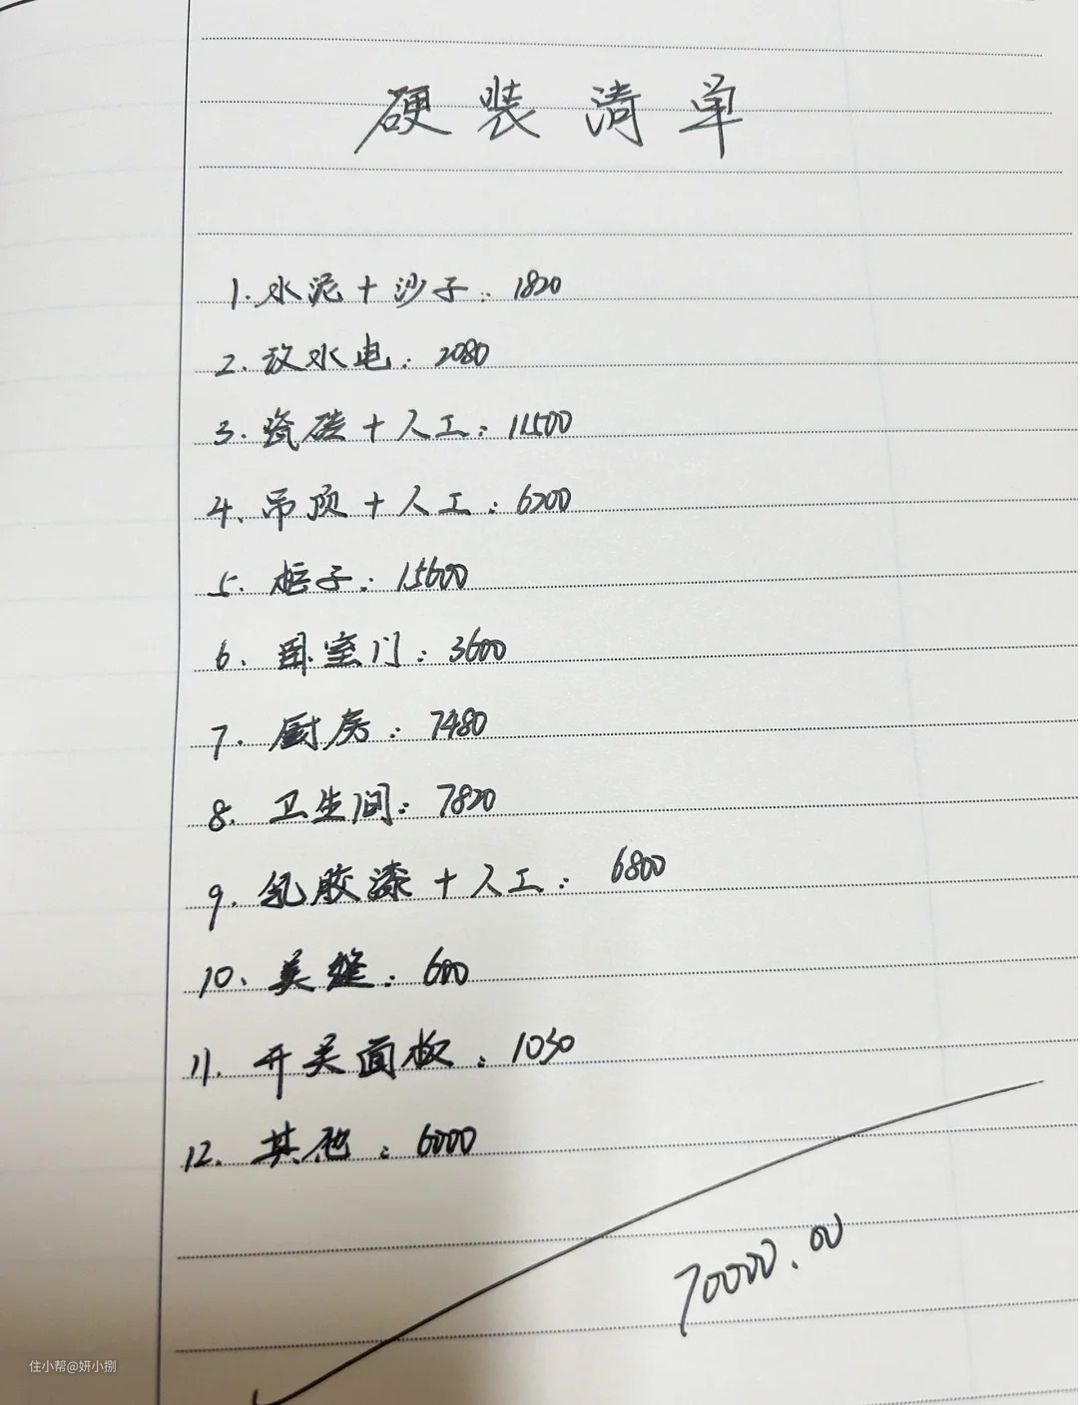 硬装清单
1.水泥+沙子:1820
2.改水电:2080
3.瓷砖+人工:11500
4.吊顶+人工:6200
5.柜子:15600
6.卧室门:3600
7.厨房:7480
8.卫生间:7820
9.乳胶漆+人工:6800
10.美缝:600
11.开关面板:1030
12.其他:6000
70000.00
住小帮@妍小捌